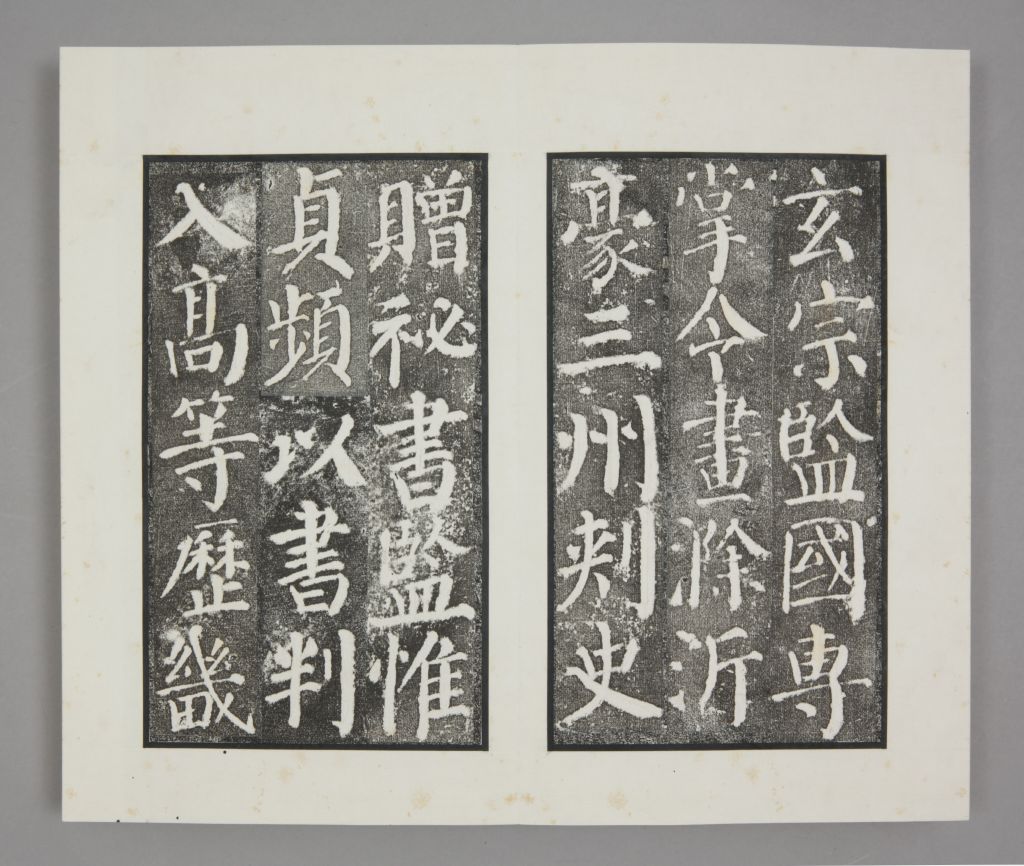 玄宗監國專
掌令畫滁沂
豪三州刺史
贈祕書監惟
貞頻以書判
入高等歷畿